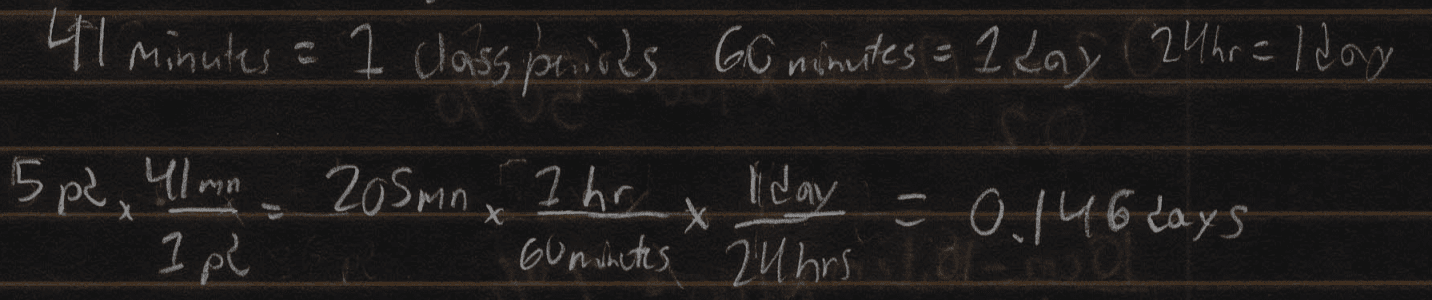 41 minutes = 1 class periods 60 minutes = 1 day 24hr = 1 day
5 pd x 41mn/1 pd = 205mn x 1 hr/60 minutes x 1 day/24 hrs = 0.146 days